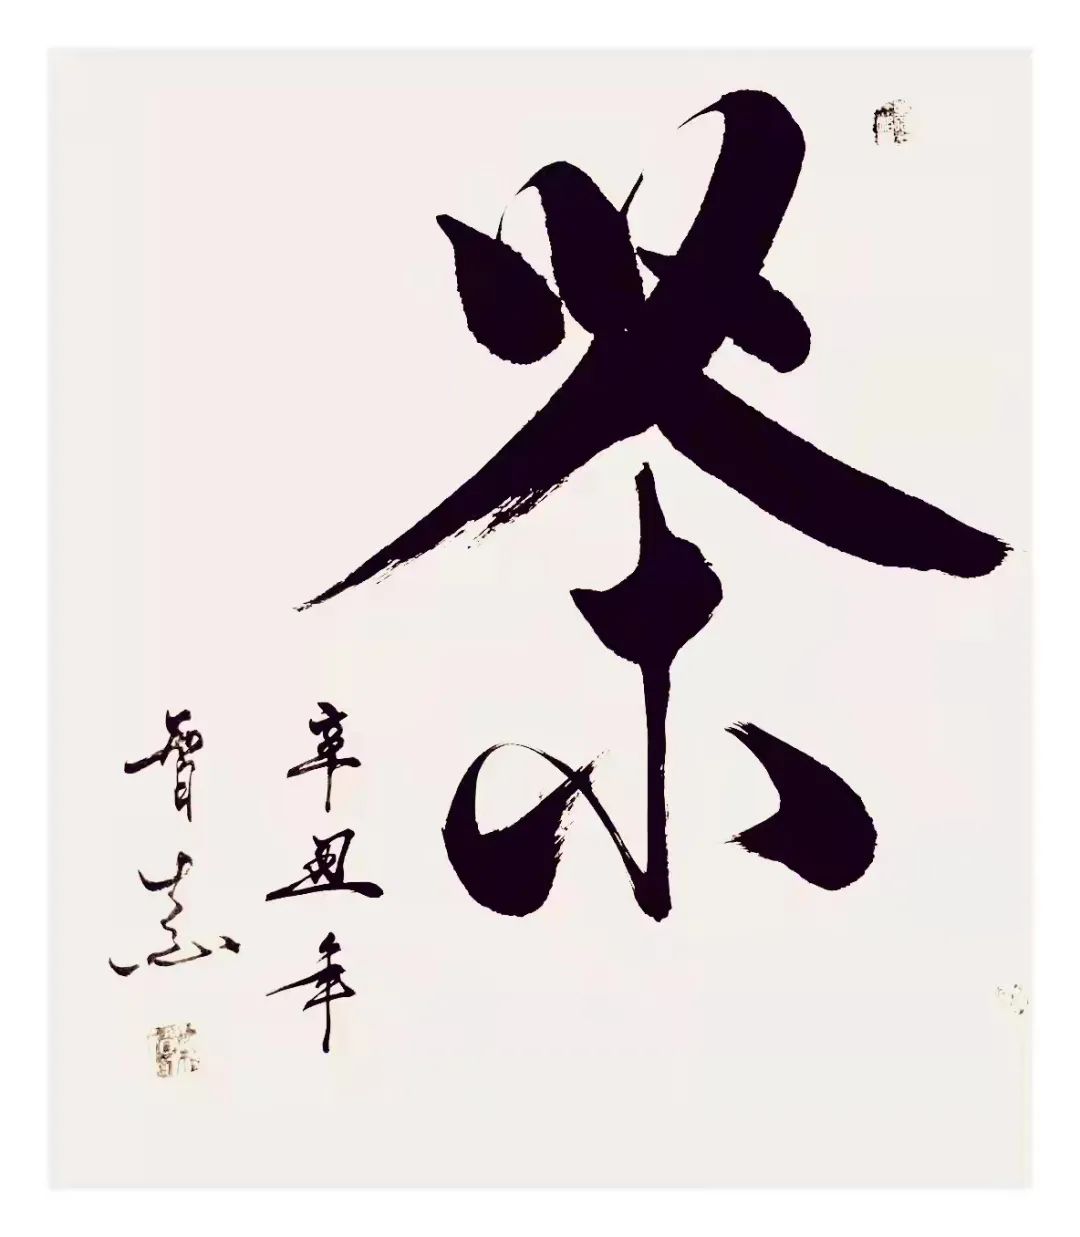 茶
辛丑年
智志